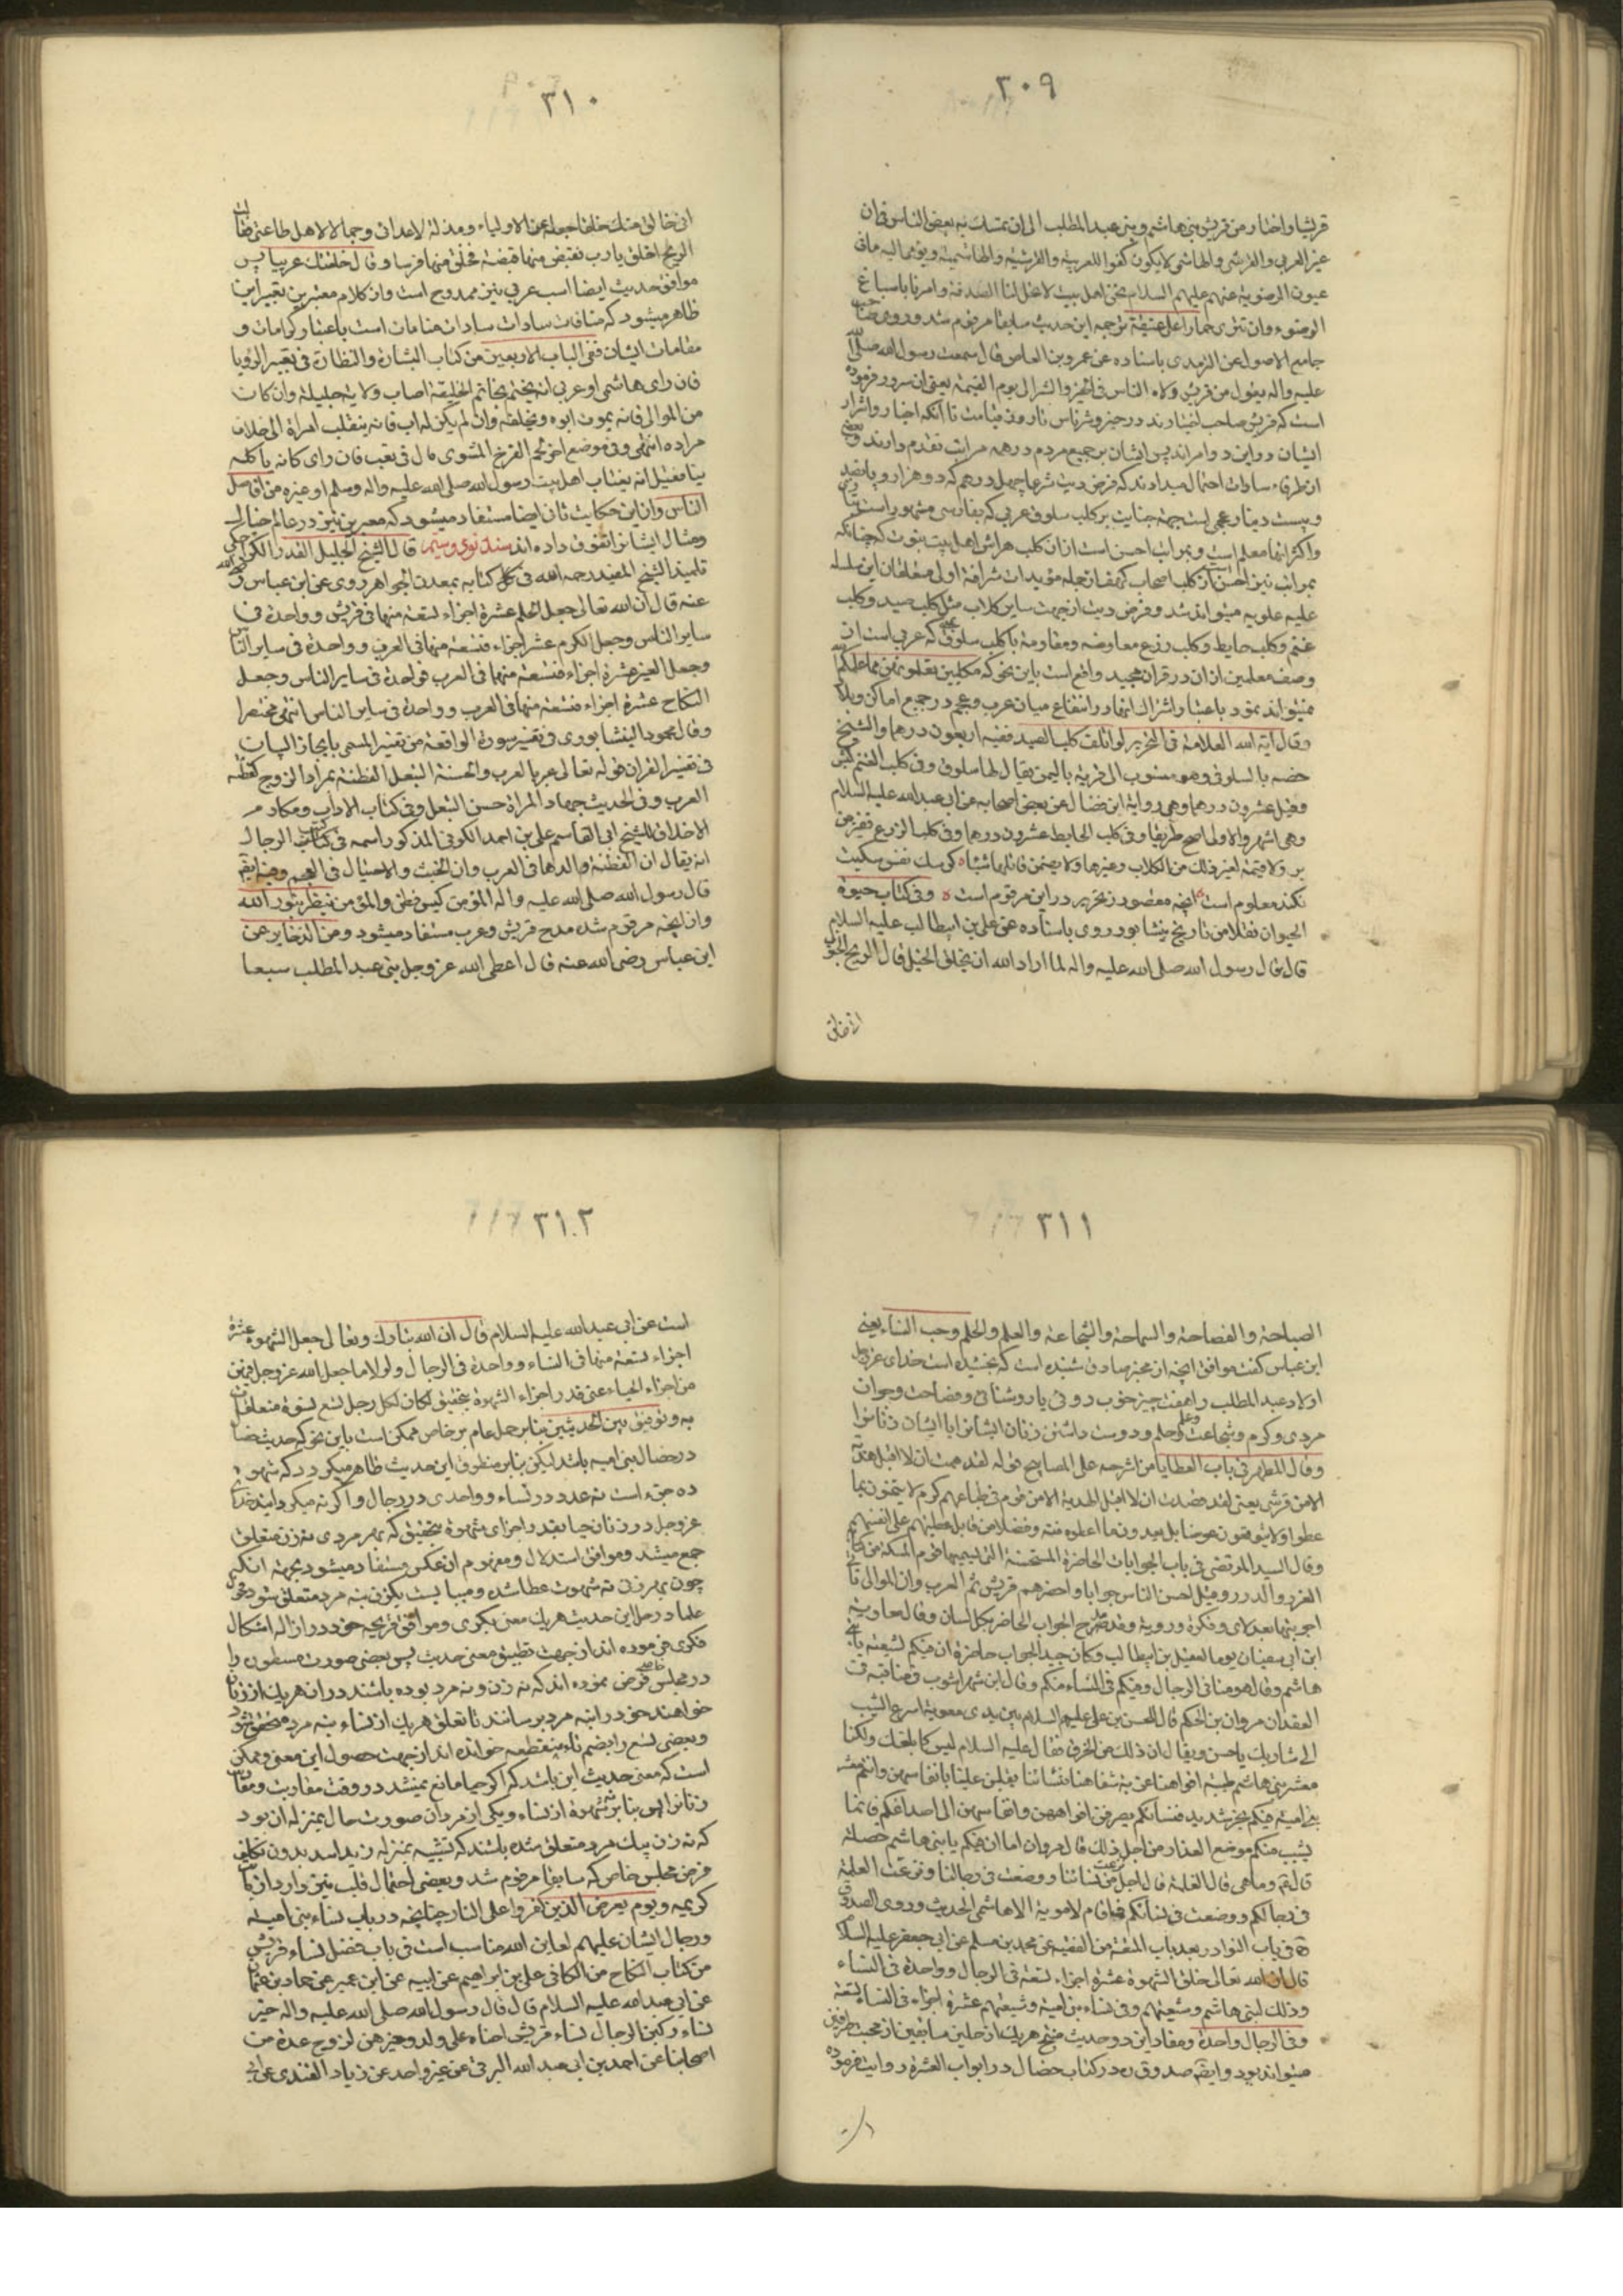 ٣٠٩
قریشا واختار من قریش بنی هاشم وبنی عبدالمطلب الی ان تمسك به بعض الناس فان
غیر العربی والقرشی والهاشمی لایکون کفوا للعربیة والقرشیة والهاشمیة ویومی الیه ما فی
عیون الرضویة عنهم علیهم السلام نحن اهل بیت لا تحل لنا الصدقة وامرنا باسباغ
الوضوء وان لا ننزی حمارا علی عتیقة ترجمه این حدیث سابقا مرقوم شد وروی صاحب
جامع الاصول عن الترمذی باسناده عن عمرو بن العاص قال سمعت رسول الله صلی الله
علیه واله یقول من قریش ولاة الناس فی الخیر والشر الی یوم القیمة یعنی ان سرور فرموده
است که قریش صاحب اختیارند در خیر وشر ناس تا روز قیامت تا آنکه اخیار واشرار
ایشان در این دو امر اند پس ایشان بر جمیع مردم در همه مراتب تقدم دارند وبعضی
از ظرفاء سادات احتمال میدادند که فرض دیت شرعا چهل درهم که دو هزار و پانصد
وبیست دینار عجمی است جهة جنایت بر کلب سلوقی عربی که بفارسی مشهور است
واکثر انها معلم است وبمراتب احسن است از ان کلب هراش اهل بیت بیوت که چنانکه
بمراتب نیز احسن است از کلب اصحاب کهف از جمله مؤیدات شرافة اول متعلقان این سلسله
علیه علویه میتواند شد وفرض دیت از جهت سایر کلاب مثل کلب صید وکلب
غنم وکلب حایط وکلب زرع معاوضه ومقاومة با کلب سلوقی که عربی است ان
وصف معلمین از ان در قران مجید واقع است باین نحو که مکلبین تعلمونهن مما علمکم الله
میتواند نمود باعتبار اشتراك انها در انتفاع میان عرب وعجم در جمیع اماکن وبلاد
وقال آیة الله العلامة فی التحریر لو اتلف کلب الصید ففیه اربعون درهما والشیخ
خصه بالسلوقی وهو منسوب الی قریة بالیمن یقال لها سلوق وفی کلب الغنم کبش
وقیل عشرون درهما وهی روایة ابن فضال عن بعض اصحابه عن ابی عبدالله علیه السلام
وهی اشهر والاولی اصح طریقا وفی کلب الحایط عشرون درهما وفی کلب الزرع قفیز من
بر ولا قیمة لغیر ذلك من الکلاب وغیرها ولا یضمن قاتلها شیئا
نکند معلوم است انچه مقصود ز تحریر در این مرقوم است وفی کتاب حیوة
الحیوان نقلا من تاریخ نیشابور وروی باسناده عن علی بن ابیطالب علیه السلام
قال قال رسول الله صلی الله علیه واله لما اراد الله ان یخلق الخیل قال الریح الجنوب
انی خالق
٣١٠
انی خالق منك خلقا اجعله عزا لاولیاء ومذلة لاعدائی وجمالا لاهل طاعتی فقالت
الریح اخلق یا رب فقبض منها قبضة فخلق منها فرسا وقال خلقتك عربیا پس
موافق حدیث ایضا اسب عربی نیز ممدوح است واز کلام معتبرین تعبیر این
ظاهر میشود که منافات سادات سادات منامات است باعتبار کرامات و
مقامات ایشان ففی الباب الاربعین من کتاب البشارة والنظارة فی تعبیر الرؤیا
فان رای هاشمی او عربی انه یختم بخاتم الخلیفة اصاب ولایة جلیلة وان کان
من الموالی فانه یموت ابوه ویخلفه وان لم یکن له اب فانه ینقلب امراة الی خلاف
مراده انتهی وفی موضع اخر لحم الفرخ المشوی مال فی تعب فان رای کانه یاکله
نیا فقیل انه یغتاب اهل بیت رسول الله صلی الله علیه واله وسلم او غیره من افاضل
الناس واز این حکایت ثانی ایضا مستفاد میشود که معبرین نیز در عالم خیال
ومثال ایشان را تفوق داده اند سند نود وسیم قال الشیخ الجلیل القدر الکراجکی
تلمیذ الشیخ المفید رحمه الله فی کتابه بمعدن الجواهر روی عن ابن عباس رضی الله
عنه قال ان الله تعالی جعل العلم عشرة اجزاء تسعة منها فی قریش وواحدة فی
سایر الناس وجعل الکرم عشر اجزاء فتسعة منها فی العرب وواحدة فی سایر الناس
وجعل الغیرة عشرة اجزاء فتسعة منها فی العرب فواحدة فی سایر الناس وجعل
النکاح عشرة اجزاء فتسعة منها فی العرب وواحدة فی سایر الناس انتهی مختصرا
وقال محمود النیشابوری فی تفسیر سورة الواقعة من تفسیر المسمی بایجاز البیان
فی تفسیر القران قوله تعالی عربا العرب والحسنة التبعل الفطنة بمراد الزوج کفطنة
العرب وفی الحدیث جهاد المراة حسن التبعل وفی کتاب الاداب ومکارم
الاخلاق للشیخ ابی القاسم علی بن احمد الکوفی المذکور اسمه فی کتاب الرجال
انه یقال ان الفطنة والدهاء فی العرب وان الخبث والاحتیال فی العجم وفیه ایضا
قال رسول الله صلی الله علیه واله المؤمن کیس فطن والمؤمن ینظر بنور الله
وان انچه مرقوم شد مدح قریش وعرب مستفاد میشود ومن الذخایر عن
ابن عباس رضی الله عنه قال اعطی الله عز وجل بنی عبدالمطلب سبعا
٣١١
الصباحة والفصاحة والسماحة والشجاعة والعلم والحلم وحب النساء یعنی
ابن عباس کفت موافق انچه از مخبر صادق شنیده است که بخشیده است خدای عز وجل
اولاد عبدالمطلب را هفت چیز خوب روئی یا روشنائی وفصاحت وجوان
مردی وکرم وشجاعت وعلم وحلم ودوست داشتن زنان ایشانرا یا ایشان زنانرا
وقال المطهر فی باب العطایا من شرحه علی المصابیح قوله لقد هممت ان لا اقبل هدیة
الا من قرشی یعنی لقد قصدت ان لا اقبل الهدیة الا من قوم فی طباعهم کرم لا یمنون بما
عطوا ولا یتوقعون عوضا بل یعدون ما اعطوه منة وفضلا من قابل عطیتهم علی انفسهم
وقال السید المرتضی فی باب الجوابات الحاضرة المستحسنة التی یسمیها قوم المسکتة من کتاب
الغرر والدرر وقیل احسن الناس جوابا واحضرهم قریش ثم العرب وان الموالی تاتی
اجوبتها بعد رای وفکرة ورویة وقد مدح الجواب الحاضر بکل لسان وقال معاویة
ابن ابی سفیان یوما لعقیل بن ابیطالب وکان جید الجواب حاضره ان فیکم لشبقة یا بنی
هاشم وقال هو منا فی الرجال ومنکم فی النساء وقال ابن شهراشوب فی مناقبه فی
العقد ان مروان بن الحکم قال للحسن بن علی علیهم السلام بین یدی معویة اسرع الشیب
الی شاربك یا حسن ویقال ان ذلك من الخرق فقال علیه السلام لیس کما بلغك ولکنا
معشر بنی هاشم طیبة افواهنا عذبة شفاهنا فنسائنا یقبلن علینا بانفاسهن وانتم معشر
بنی امیة فیکم بخر شدید فنسائکم یصرفن افواههن وانفاسهن الی اصداغکم فانما
یشیب منکم موضع العذار من اجل ذلك قال مروان اما ان فیکم یا بنی هاشم خصلة
قال وما هی قال الغلمة قال اجل نزعت من نسائنا ووضعت فی رجالنا ونزعت الغلمة
من رجالکم ووضعت فی نسائکم فما قام لامویة الا هاشمی الحدیث وروی الصدوق
فی باب النوادر بعد باب المتعة من الفقیه عن محمد بن مسلم عن ابی جعفر علیه السلام
قال ان الله تعالی خلق الشهوة عشرة اجزاء تسعة فی الرجال وواحدة فی النساء
وذلك لبنی هاشم وشیعتهم وفی نساء بنی امیة وشیعتهم عشرة اجزاء فی النساء تسعة
وفی الرجال واحدة ومفاد این دو حدیث منتج هریك از حلین سابقین از محبت طرفین
میتواند بود وایضا صدوق ره در کتاب خصال در ابواب العشرة روایت فرموده
٣١٢
است عن ابی عبدالله علیه السلام قال ان الله تبارك وتعالی جعل الشهوة عشرة
اجزاء تسعة منها فی النساء وواحدة فی الرجال ولولا ما جعل الله عز وجل فیهن
من اجزاء الحیاء علی قدر اجزاء الشهوة بتحقیق لکان لکل رجل تسع نسوة متعلقات
به وتوفیق بین الحدیثین بنابر حمل عام بر خاص ممکن است باین نحو که حدیث خصال
در خصال بنی امیه باشد لیکن بنابر منطوق این حدیث ظاهر میکردد که شهوت
ده جزء است نه عدد در نساء وواحدی در رجال واکر نه میکردانید خدای
عز وجل در زنان حیا بقدر اجزای شهوة بتحقیق که بهر مردی نه زن متعلق
جمع میشد وموافق استدلال ومفهوم ان عکس مستفاد میشود بجهة انکه
چون بهر زن نه شهوت عطا شده ومیبایست یکزن بنه مرد متعلق شود وفحول
علما در حل این حدیث هریك معنی بکری وموافق قریحه خود در ازاله اشکال
فکری فرموده اند از جهت تطبیق معنی حدیث پس بعضی صورت مسطور را
در مجلس خاصی فرض نموده اند که نه زن ونه مرد بوده باشند در ان هریك از زنان
خواهند خود را بنه مرد برسانند تا تعلق هریك از نساء بنه مرد متحقق شود
وبعضی تسع را بضم تاء منقطعه خوانده اند از جهت حصول این معنی وممکن
است که معنی حدیث این باشد که اکر حیا مانع نمیشد در وقت مقاربت
زنانرا پس بنابر نه شهوة از نساء ویکی از مردان صورت حال بمنزله ان بود
که نه زن بیك مرد متعلق شده باشند که تشبیه بمنزله زید اسد بدون تکلف
فرض مجلس خاص که سابقا مرقوم شد وبعضی احتمال قلب نیز دارد از باب
کریمه ویوم یعرض الذین کفروا علی النار چنانچه در باب نساء بنی امیه
ورجال ایشان علیهم لعاین الله مناسب است فی باب فضل نساء قریش
من کتاب النکاح من الکافی علی بن ابراهیم عن ابیه عن ابن عمیر عن حماد بن عثمان
عن ابی عبدالله علیه السلام قال قال رسول الله صلی الله علیه واله خیر
نساء رکبن الرحال نساء قریش احناه علی ولد وخیرهن لزوج عدة من
اصحابنا عن احمد بن ابی عبدالله البرقی عن غیر واحد عن زیاد القندی عن ابی